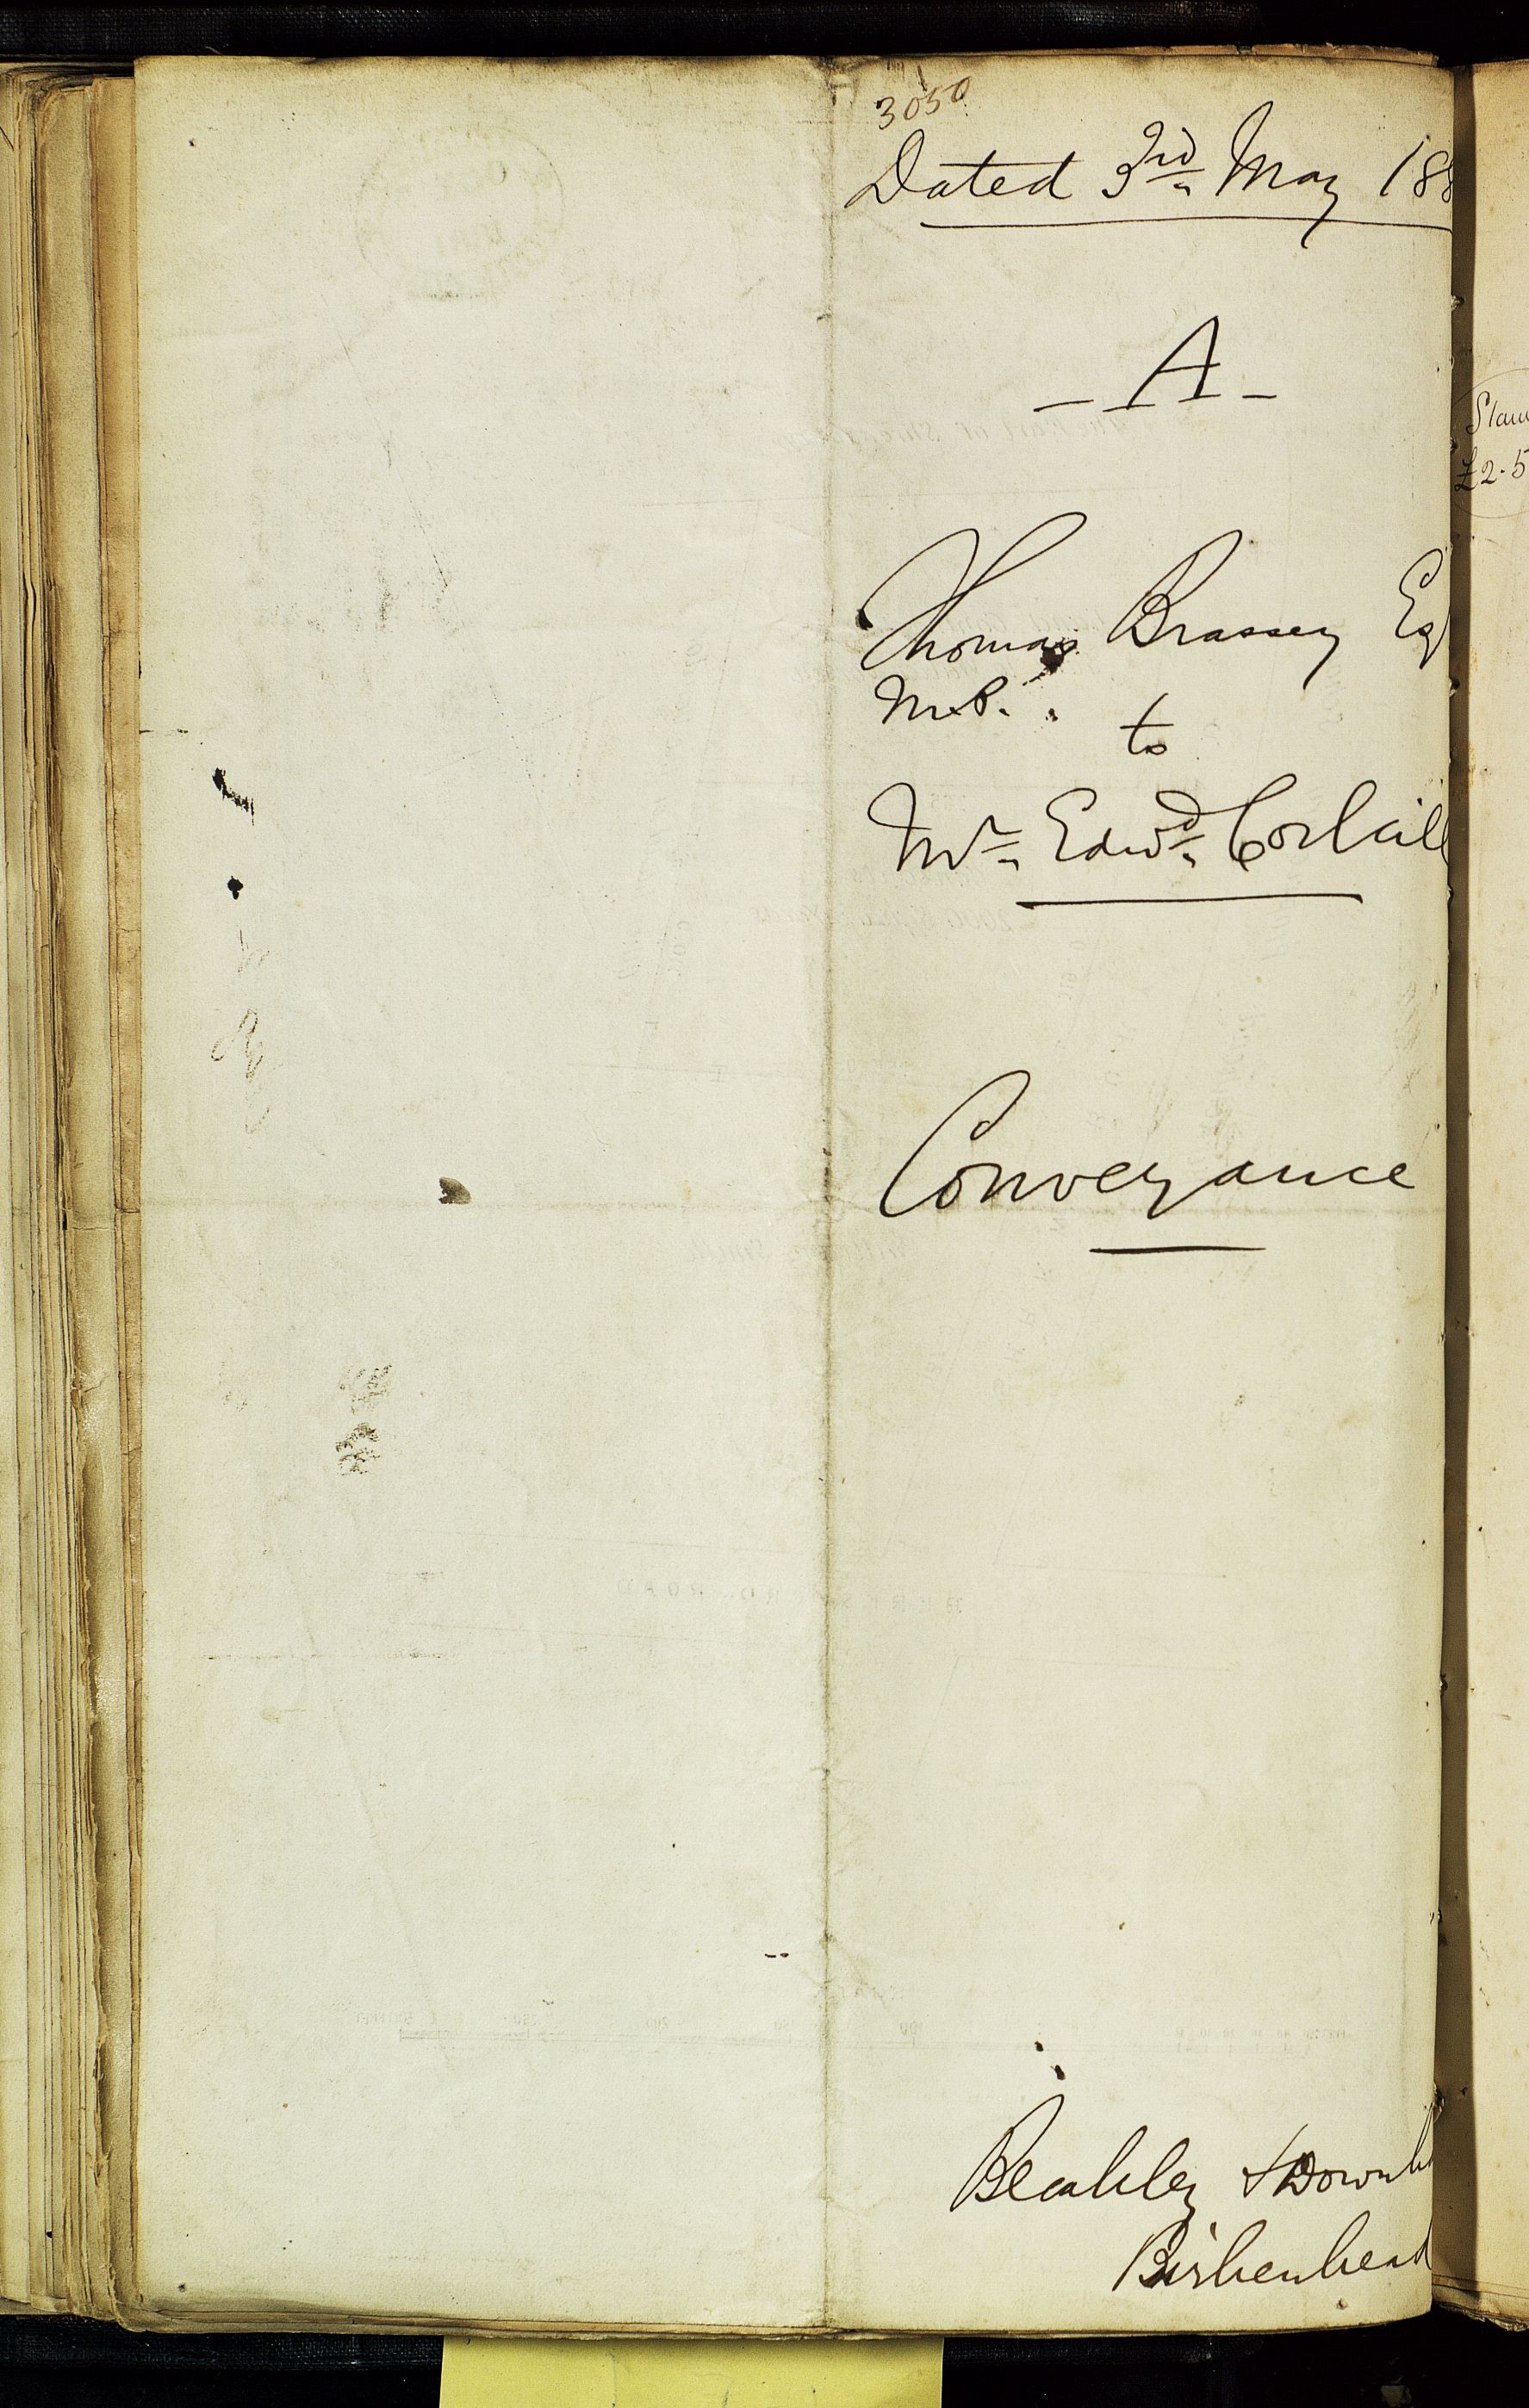 3050
Dated 3rd May 188
A
Thomas Brassey Esq
M.P.
to
Mr. Edwd. Corkill
Conveyance
Bleakley & Downh
Birkenhead
£2.5